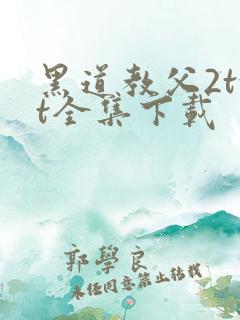 黑道教父2tx
t全集下载
郭學良
未任同意禁止转载